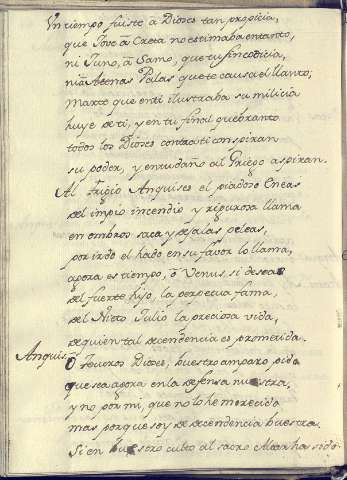 Vn tiempo fuiste a Dioses tan propicia,
que Jove a Creta no estimaba en tanto,
ni Juno, a Samo, que tu fin codicia,
ni a Atenas Palas que te causa el llanto;
Marte que en ti ilustraba su milicia
huye de ti, y en tu final quebranto
todos los Dioses contra ti conspiran
su poder, y en tu daño al Griego aspiran.
Al frigio Anquises el piadoso Eneas
del impio incendio y rigurosa llama
en ombros saca y dejalas peleas,
por irdo el hado en su favor lo llama,
agora es tiempo, ô Venus, si deseas
del fuerte hijo, la perpetua fama,
del Nieto Julio la preciosa vida,
de quien tal decendencia es prometida.
Anquis. O Dioses, buestro amparo pido
que sea agora en la defensa nuestra,
y no por mi, que no lo he merecido
mas porque soy de decendencia buestra.
Si en buestro culto al sacro Altar ha sido